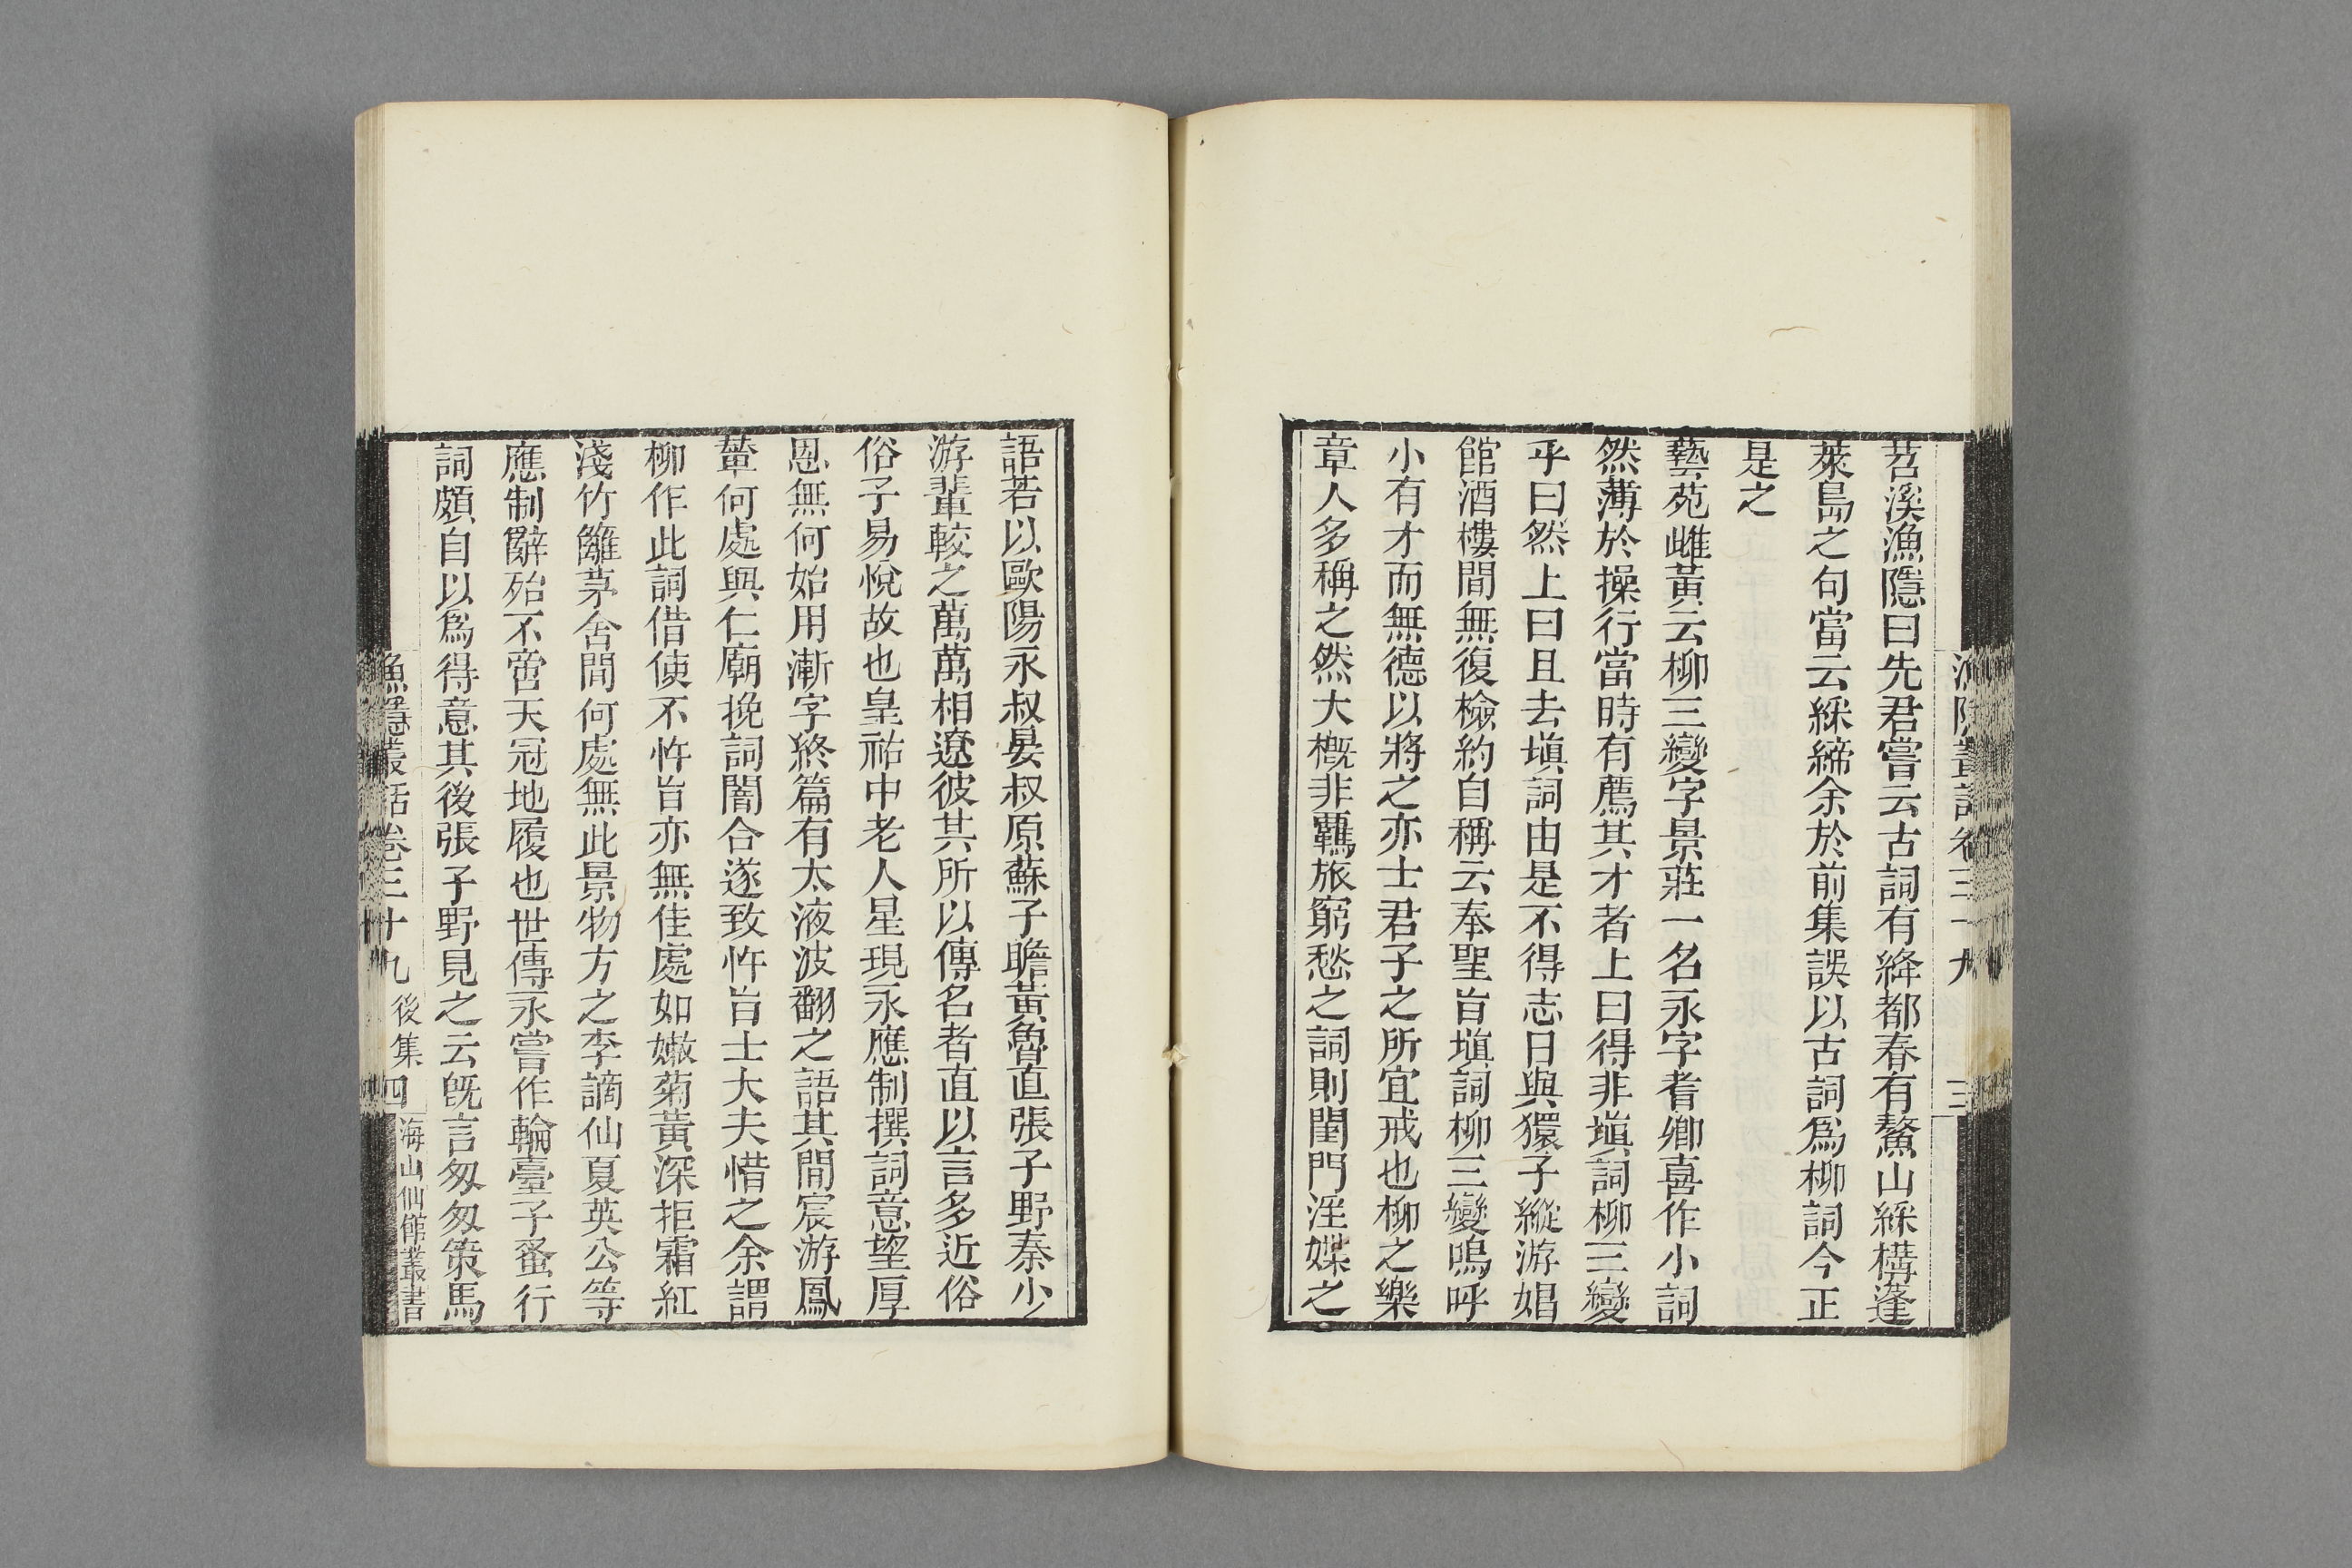 苕溪漁隱曰先君嘗云古詞有絳都春有鰲山綵構蓬
萊島之句當云綵締余於前集誤以古詞爲柳詞今正
是之
藝苑雌黃云柳三變字景莊一名永字耆卿喜作小詞
然薄於操行當時有薦其才者上曰得非塡詞柳三變
乎曰然上曰且去塡詞由是不得志日與獧子縱游娼
館酒樓間無復檢約自稱云奉聖旨塡詞柳三變嗚呼
小有才而無德以將之亦士君子之所宜戒也柳之樂
章人多稱之然大槪非羈旅窮愁之詞則閨門淫媟之
語若以歐陽永叔晏叔原蘇子瞻黃魯直張子野秦少
游輩較之萬萬相遼彼其所以傳名者直以言多近俗
俗子易悅故也皇祐中老人星現永應制撰詞意望厚
恩無何始用漸字終篇有太液波翻之語其間宸游鳳
輦何處與仁廟挽詞闇合遂致忤旨士大夫惜之余謂
柳作此詞借使不忤旨亦無佳處如嫩菊黃深拒霜紅
淺竹籬茅舍間何處無此景物方之李謫仙夏英公等
應制辭殆不啻天冠地履也世傳永嘗作輪臺子蚤行
詞頗自以爲得意其後張子野見之云旣言匆匆策馬
漁隱叢話卷三十九 後集 四 海山仙館叢書